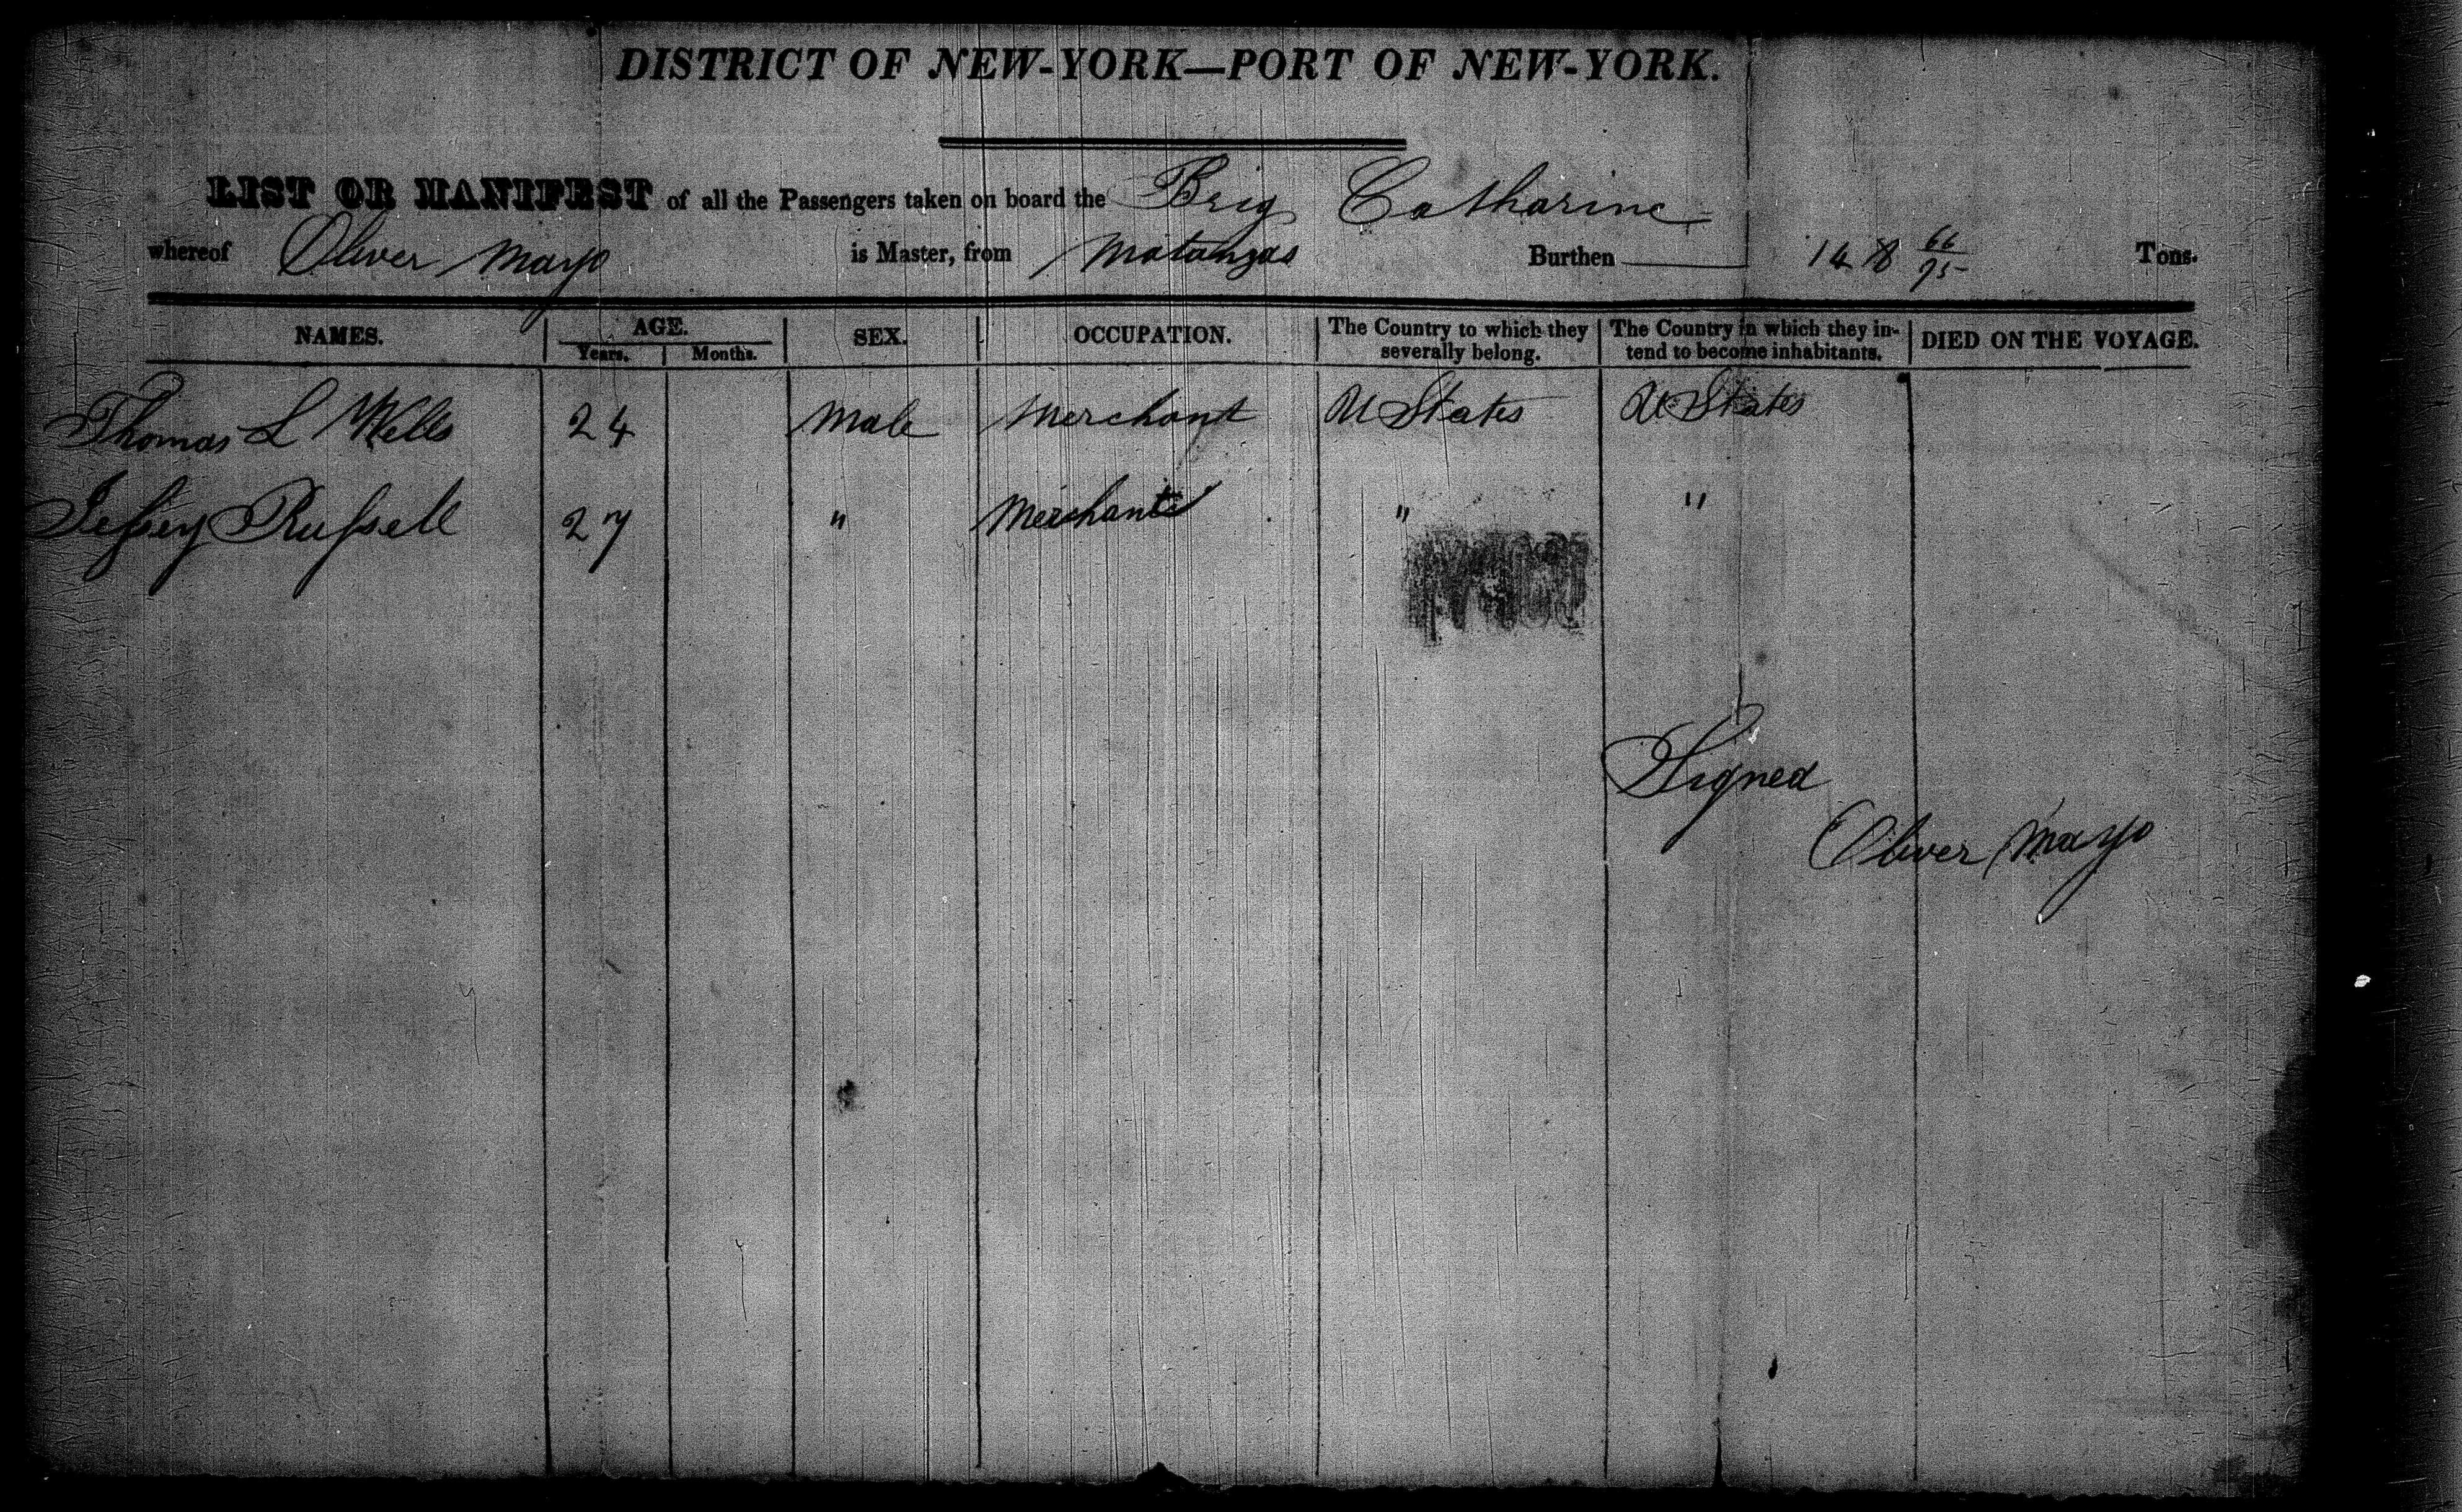 DISTRICT OF NEW-YORK—PORT OF NEW-YORK.
LIST OR MANIFEST of all the Passengers taken on board the Brig Catharine
whereof Oliver Mayo is Master, from Matanzas Burthen 148 66/95 Tons.
NAMES. AGE. Years. Months. SEX. OCCUPATION. The Country to which they severally belong. The Country in which they intend to become inhabitants. DIED ON THE VOYAGE.
Thomas L Wells 24 Male Merchant U States U States
Jessey Russell 27 " Merchant " "
Signed
Oliver Mayo